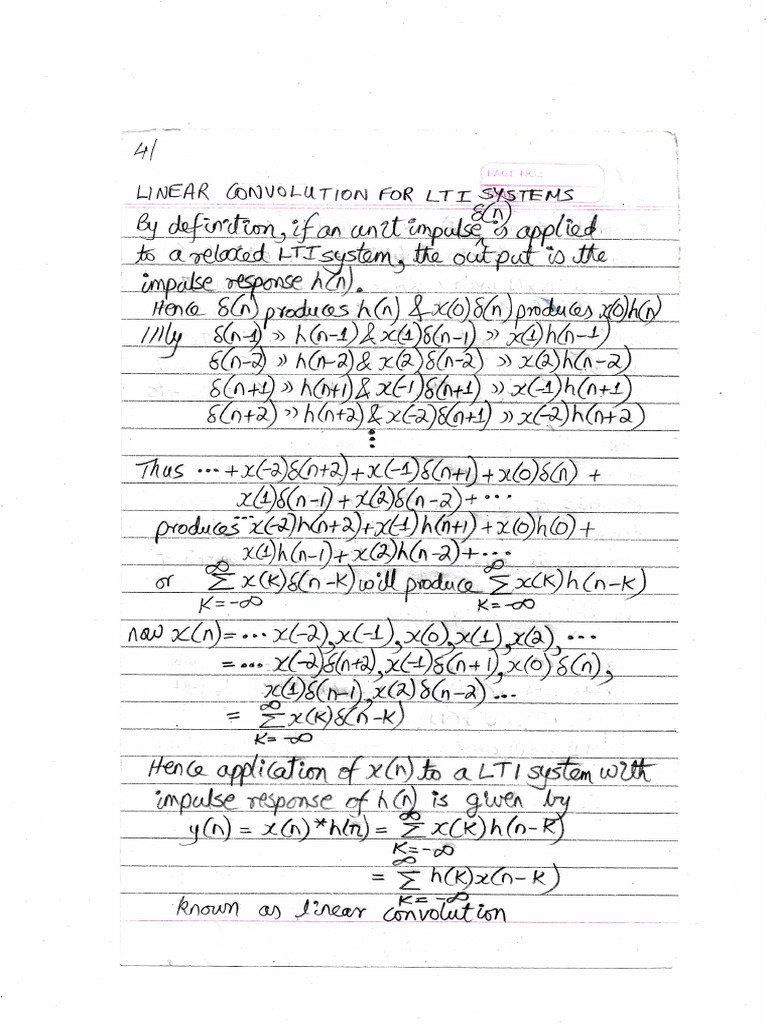 4/
PAGE NO.:
LINEAR CONVOLUTION FOR LTI SYSTEMS
By definition, if an unit impulse δ(n) is applied
to a relaxed LTI system, the output is the
impulse response h(n).
Hence δ(n) produces h(n) & x(0)δ(n) produces x(0)h(n)
///ly δ(n-1) » h(n-1) & x(1)δ(n-1) » x(1)h(n-1)
δ(n-2) » h(n-2) & x(2)δ(n-2) » x(2)h(n-2)
δ(n+1) » h(n+1) & x(-1)δ(n+1) » x(-1)h(n+1)
δ(n+2) » h(n+2) & x(-2)δ(n+1) » x(-2)h(n+2)
⋮
Thus ··· + x(-2)δ(n+2) + x(-1)δ(n+1) + x(0)δ(n) +
x(1)δ(n-1) + x(2)δ(n-2) + ···
produces ··· x(-2)h(n+2) + x(-1)h(n+1) + x(0)h(0) +
x(1)h(n-1) + x(2)h(n-2) + ···
or ∞∑K=-∞ x(K)δ(n-K) will produce ∞∑K=-∞ x(K)h(n-K)
now x(n) = ··· x(-2), x(-1), x(0), x(1), x(2), ···
= ··· x(-2)δ(n+2), x(-1)δ(n+1), x(0)δ(n),
x(1)δ(n-1), x(2)δ(n-2) ···
= ∞∑K=-∞ x(K)δ(n-K)
Hence application of x(n) to a LTI system with
impulse response of h(n) is given by
y(n) = x(n)*h(n) = ∞∑K=-∞ x(K)h(n-K)
= ∞∑K=-∞ h(K)x(n-K)
known as linear convolution